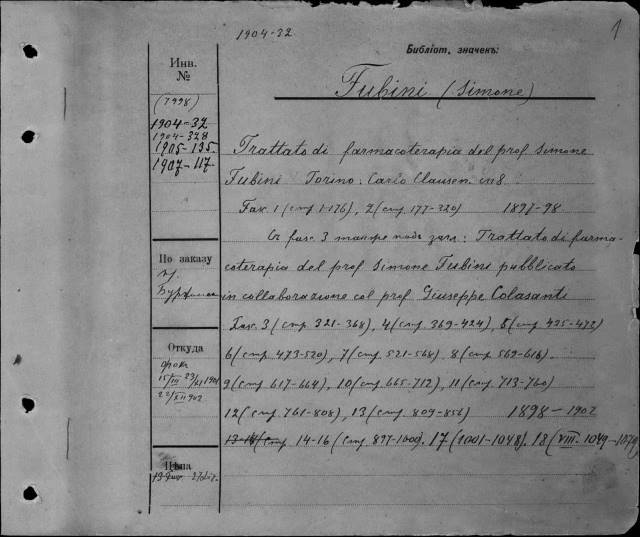 1904-32
1
Библіот. значекъ:
Инв.
№
Fubini (Simone)
(7998)
1904-32
1904-328
1905-135.
1907-117.
Trattato di farmacoterapia del prof. Simone
Fubini Torino: Carlo Clausen. in 8.
Fasc. 1 (стр. 1-176), 2 (стр. 177-320) 1897-98
Съ fasc. 3 также подъ загл: Trattato di farma-
По заказу
coterapia del prof. Simone Fubini pubblicato
in collaborazione col prof. Giuseppe Colasanti
Fasc. 3 (стр. 321-368), 4 (стр. 369-424), 5 (стр. 425-472)
Откуда
6 (стр. 473-520), 7 (стр. 521-568). 8 (стр. 569-616).
9 (стр. 617-664), 10 (стр. 665-712), 11 (стр. 713-760)
12 (стр. 761-808), 13 (стр. 809-856) 1898-1902
стр. 14-16 (стр. 857-1000). 17 (1001-1048). 18 (VIII. 1049-
Цѣна